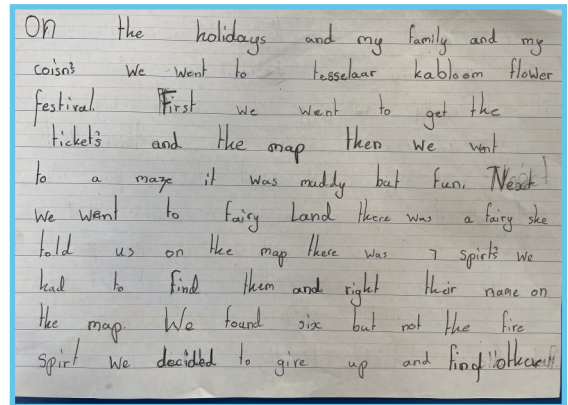 On the holidays and my family and my
coisn's we went to tesselaar kabloom flower
festival. First we went to get the
ticket's and the map then we wnt
to a maze it was muddy but fun. Next
we went to fairy Land there was a fairy she
told us on the map there was 7 spirt's we
had to find them and right their name on
the map. We found six but not the fire
spirt we decided to give up and find